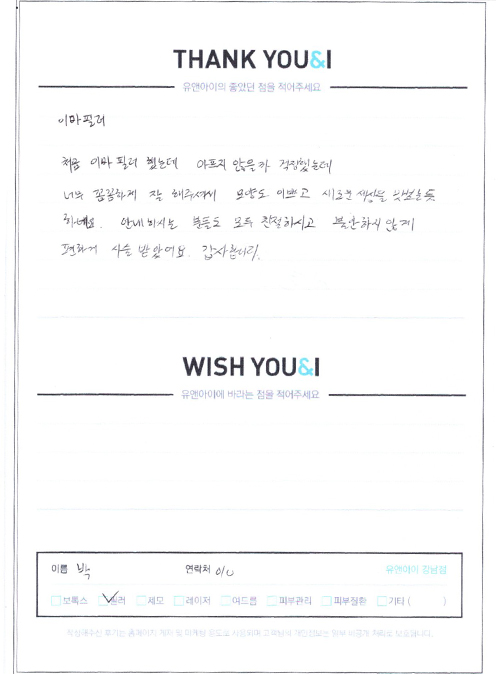 THANK YOU&I
유앤아이의 좋았던 점을 적어주세요
이마필러
처음 이마 필러 했는데 아프지 않을까 걱정했는데
너무 꼼꼼하게 잘 해주셔서 모양도 이쁘고 새로운 세상을 맛본듯
하네요. 안내하시는 분들도 모두 친절하시고 불안하지 않게
편하게 시술 받았어요. 감사합니다.
WISH YOU&I
유앤아이에 바라는 점을 적어주세요
이름 박 연락처 010 유앤아이 강남점
보톡스 필러 제모 레이저 여드름 피부관리 피부질환 기타 ( )
작성해주신 후기는 홈페이지 게재 및 마케팅 용도로 사용되며 고객님의 개인정보는 일부 비공개 처리로 보호됩니다.